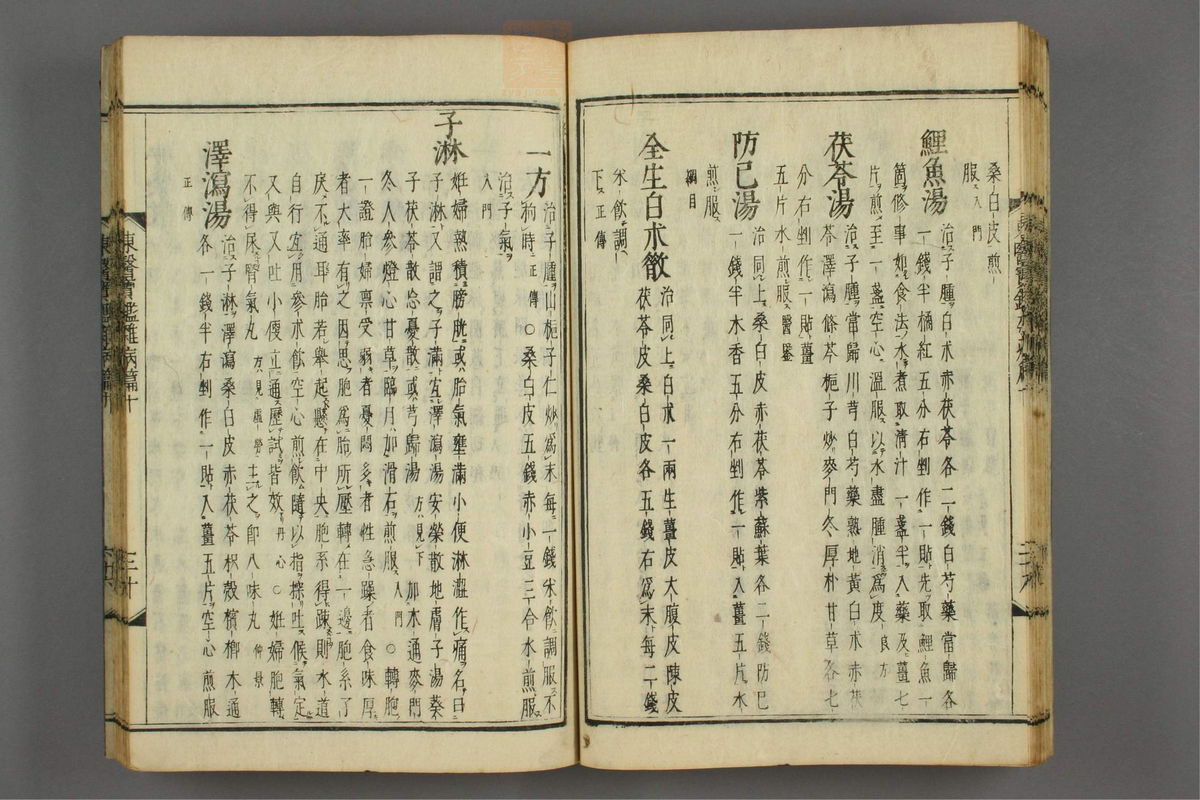 桑白皮煎
服入門
鯉魚湯
治子腫白朮赤茯苓各二錢白芍藥當歸各
一錢半橘紅五分右剉作一貼先取鯉魚一
箇修事如食法水煮取淸汁一盞半入藥及薑七
片煎至一盞空心溫服以水盡腫消爲度良方
茯苓湯
治子腫當歸川芎白芍藥熟地黃白朮赤茯
苓澤瀉條芩梔子炒麥門冬厚朴甘草各七
分右剉作一貼薑
五片水煎服醫鑒
防己湯
治同上桑白皮赤茯苓紫蘇葉各二錢防己
一錢半木香五分右剉作一貼入薑五片水
煎服
綱目
全生白朮散
治同上白朮一兩生薑皮大腹皮陳皮
茯苓皮桑白皮各五錢右爲末每二錢
米飮調
下正傳
一方
治子腫山梔子仁炒爲末每一錢米飮調服不
拘時正傳○桑白皮五錢赤小豆三合水煎服
治子氣
入門
子淋
姙婦熱積膀胱或胎氣壅滿小便淋澁作痛名曰
子淋又謂之子滿宜澤瀉湯安榮散地膚子湯葵
子茯苓散忘憂散或芎歸湯方見下加木通麥門
冬人參燈心甘草臨月加滑石煎服入門○轉胞
一證胎婦稟受弱者憂悶多者性急躁者食味厚
者大率有之因思胞爲胎所壓轉在一邊胞系了
戾不通耳胎若擧起懸在中央胞系得疎則水道
自行宜用參朮飮空心煎飮隨以指探吐候氣定
又與又吐小便立通歷試皆效丹心○姙婦胞轉
不得尿腎氣丸方見虛勞主之卽八味丸仲景
澤瀉湯
治子淋澤瀉桑白皮赤茯苓枳殼檳榔木通
各一錢半右剉作一貼入薑五片空心煎服
正傳
東醫寶鑑雜病篇十
三十